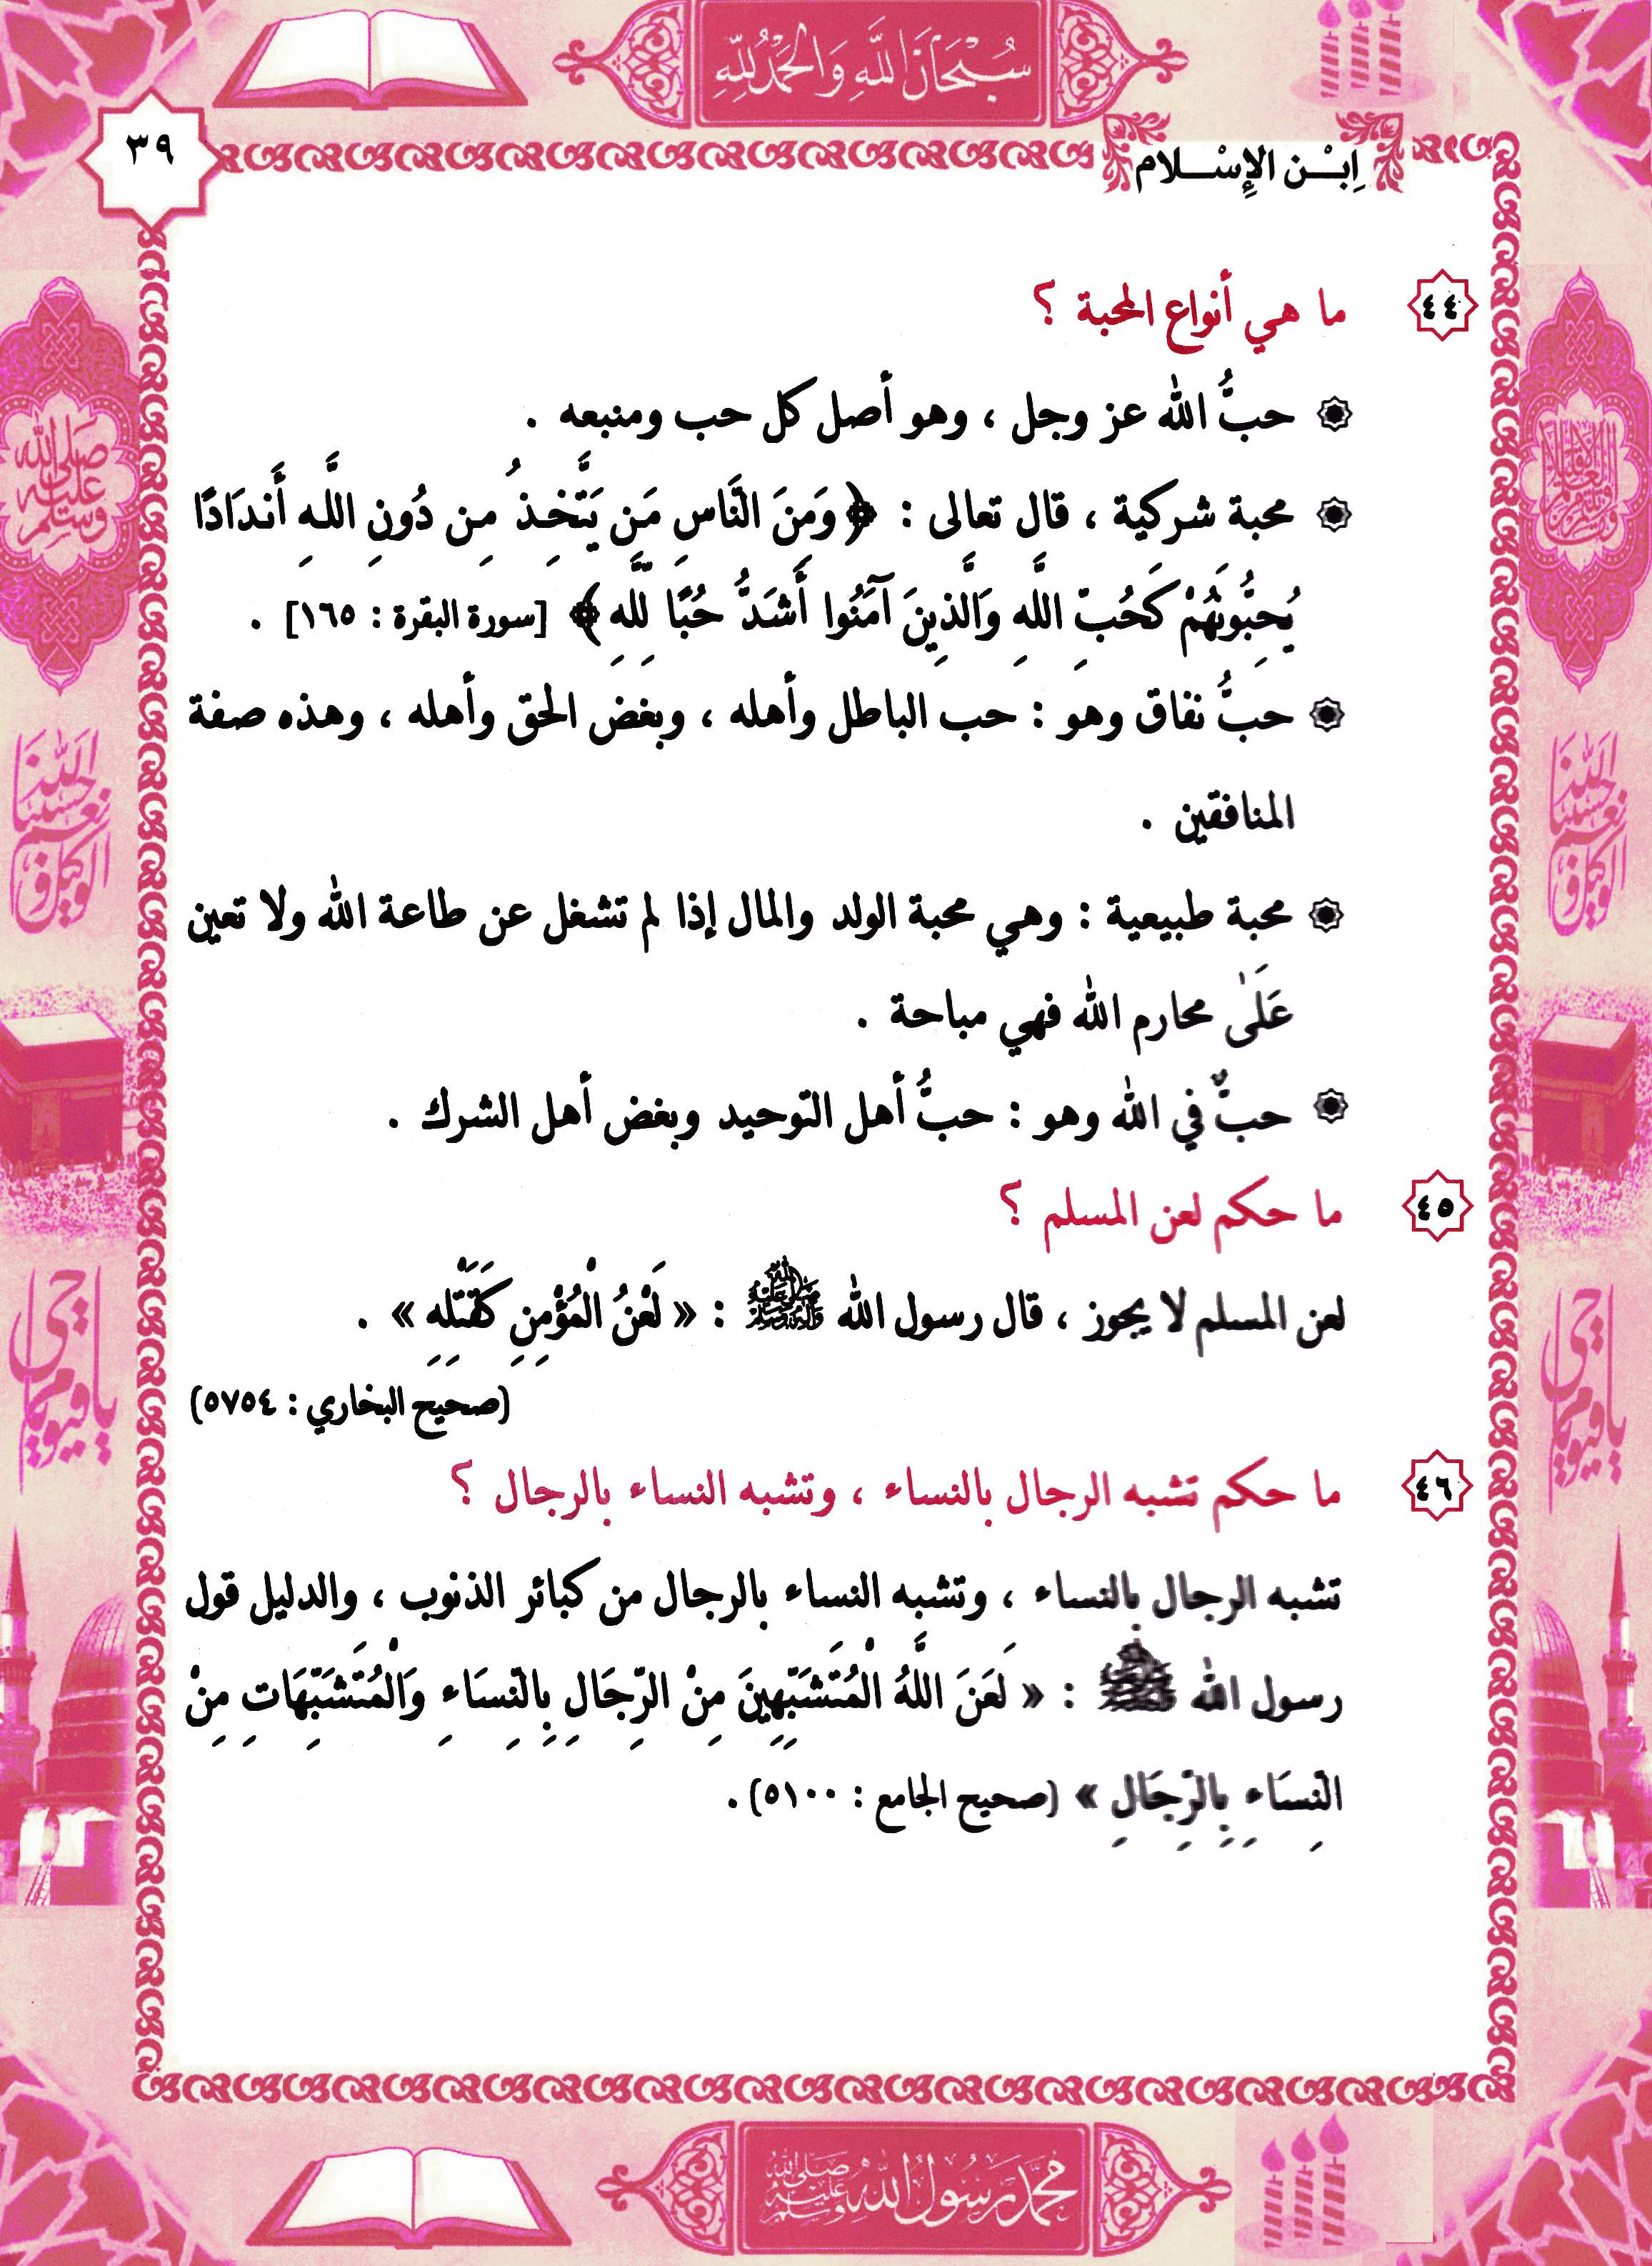 سُبْحَانَ اللَّهِ وَالْحَمْدُ لِلَّهِ
٣٩
اِبْـن الإِسْـلام
٤٤ ما هي أنواع المحبة ؟
حبُّ الله عز وجل ، وهو أصل كل حب ومنبعه .
محبة شركية ، قال تعالى : ﴿ وَمِنَ النَّاسِ مَن يَتَّخِذُ مِن دُونِ اللَّهِ أَندَادًا
يُحِبُّونَهُمْ كَحُبِّ اللَّهِ وَالَّذِينَ آمَنُوا أَشَدُّ حُبًّا لِّلَّهِ ﴾ [سورة البقرة : ١٦٥] .
حبُّ نفاق وهو : حب الباطل وأهله ، وبغض الحق وأهله ، وهذه صفة
المنافقين .
محبة طبيعية : وهي محبة الولد والمال إذا لم تشغل عن طاعة الله ولا تعين
عَلَىٰ محارم الله فهي مباحة .
حبٌّ في الله وهو : حبُّ أهل التوحيد وبغض أهل الشرك .
٤٥ ما حكم لعن المسلم ؟
لعن المسلم لا يجوز ، قال رسول الله ﷺ : « لَعْنُ الْمُؤْمِنِ كَقَتْلِهِ » .
(صحيح البخاري : ٥٧٥٤)
٤٦ ما حكم تشبه الرجال بالنساء ، وتشبه النساء بالرجال ؟
تشبه الرجال بالنساء ، وتشبه النساء بالرجال من كبائر الذنوب ، والدليل قول
رسول الله ﷺ : « لَعَنَ اللَّهُ الْمُتَشَبِّهِينَ مِنْ الرِّجَالِ بِالنِّسَاءِ وَالْمُتَشَبِّهَاتِ مِنْ
النِّسَاءِ بِالرِّجَالِ » (صحيح الجامع : ٥١٠٠) .
صلى الله عليه وسلم
حسبنا الله ونعم الوكيل
حسبنا الله ونعم الوكيل
يا حي يا قيوم
يا حي يا قيوم
محمد رسول الله صلى الله عليه وسلم